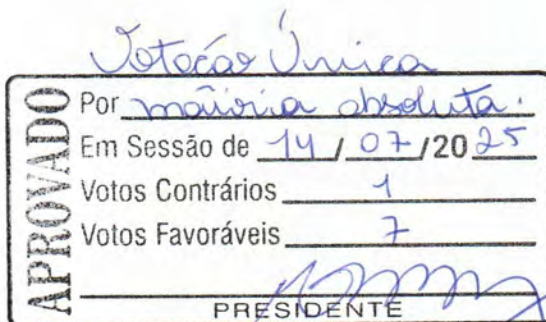 Votação Única
APROVADO
Por maioria absoluta.
Em Sessão de 14 / 07 /20 25
Votos Contrários 1
Votos Favoráveis 7
PRESIDENTE